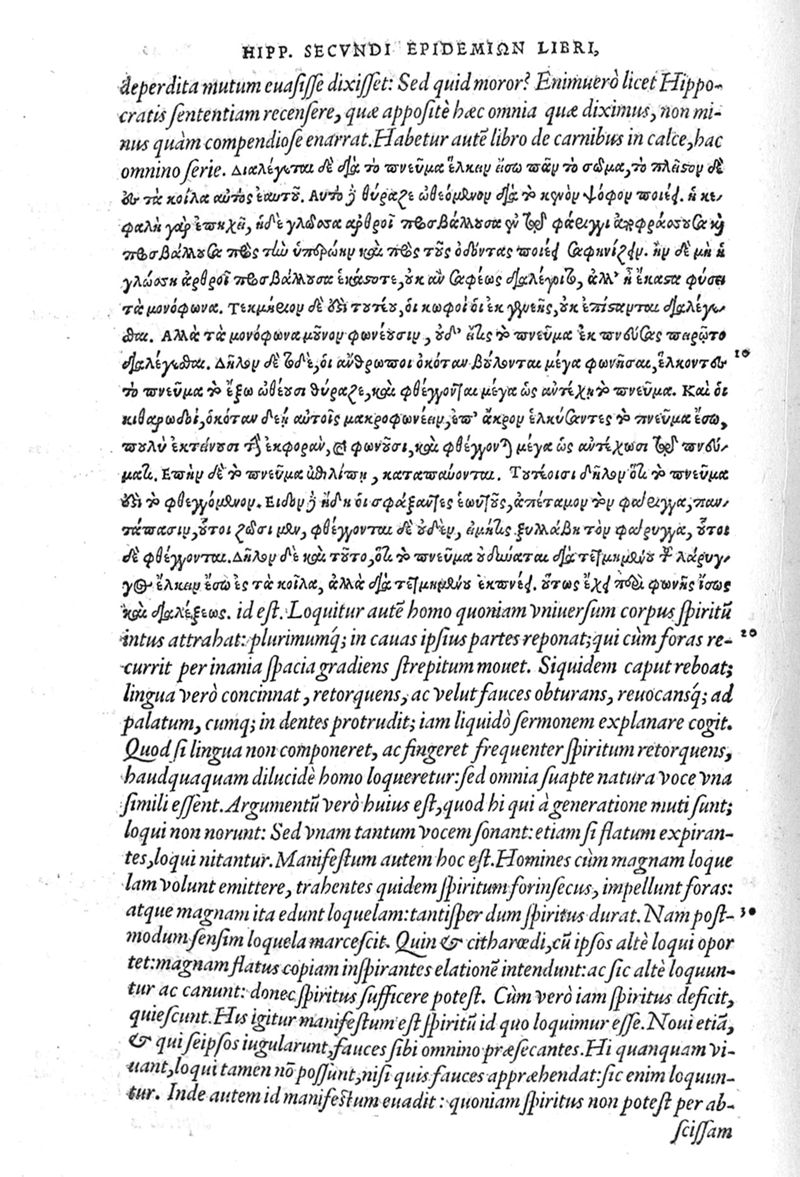 HIPP. SECVNDI EPIDEMIΩN LIBRI,
deperdita mutum euaſiſſe dixiſſet: Sed quid moror? Enimuerò licet Hippo-
cratis ſententiam recenſere, quæ appoſitè hæc omnia quæ diximus, non mi-
nus quàm compendioſe enarrat. Habetur autē libro de carnibus in calce, hac
omnino ſerie. Διαλέγεται δὲ διὰ τὸ πνεῦμα ἕλκειν ἔσω πᾶν τὸ σῶμα, τὸ πλεῖστον δὲ
ἐς τὰ κοῖλα αὐτὸς ἑαυτοῦ. Αὐτὸ δὲ θύραζε ὠθεόμενον διὰ τὸ κενὸν ψόφον ποιέει. ἡ κε-
φαλὴ γὰρ ἐπηχεῖ, ἡ δὲ γλῶσσα ἀρθροῖ προσβάλλουσα ἐν τῷ φάρυγγι ἀποφράσσουσα καὶ
προσβάλλουσα πρὸς τὴν ὑπερώην καὶ πρὸς τοὺς ὀδόντας ποιέει σαφηνίζειν. ἢν δὲ μὴ ἡ
γλώσση ἀρθροῖ προσβάλλουσα ἑκάστοτε, οὐκ ἂν σαφέως διαλέγοιτο, ἀλλ' ἢ ἕκαστα φύσει
τὰ μονόφωνα. Τεκμήριον δὲ ἐστι τουτέου, οἱ κωφοὶ οἱ ἐκ γενεῆς, οὐκ ἐπίστανται διαλέγε-
σθαι. Ἀλλὰ τὰ μονόφωνα μοῦνον φωνέουσιν, οὐδ' εἴ τις τὸ πνεῦμα ἐκπνεύσας πειρῷτο
διαλέγεσθαι. Δῆλον δὲ τόδε, οἱ ἄνθρωποι ὁκόταν βούλονται μέγα φωνῆσαι, ἕλκοντες
τὸ πνεῦμα τὸ ἔξω ὠθέουσι θύραζε, καὶ φθέγγονται μέγα ὡς ἀντέχῃ τὸ πνεῦμα. Καὶ οἱ
κιθαρῳδοὶ, ὁκόταν δέῃ αὐτοῖς μακροφωνέειν, ἐπ' ἄκρον ἑλκύσαντες τὸ πνεῦμα ἔσω,
πουλὺ ἐκτείνουσι τὴν ἐκφορὰν, καὶ φωνοῦσι, καὶ φθέγγονται μέγα ὡς ἀντέχωσι τῷ πνεύ-
ματι. Ἐπὴν δὲ τὸ πνεῦμα ἐπιλίπῃ, καταπαύονται. Τουτέοισι δῆλον ὅτι τὸ πνεῦμα
ἐστι τὸ φθεγγόμενον. Εἶδον δὲ ἤδη οἳ σφάξαντες ἑωυτοὺς, ἀπέταμον τὸν φάρυγγα, παν-
τάπασιν, οὗτοι ζῶσι μὲν, φθέγγονται δὲ οὐδὲν, εἰ μή τις ξυλλάβῃ τὸν φάρυγγα, οὗτοι
δὲ φθέγγονται. Δῆλον δὲ καὶ τοῦτο, ὅτι τὸ πνεῦμα οὐ δύναται διὰ τετμημένου τοῦ λάρυγ-
γος ἕλκειν ἔσω ἐς τὰ κοῖλα, ἀλλὰ διὰ τετμημένου ἐκπνέει. οὕτως ἔχει περὶ φωνῆς ἴσως
καὶ διαλέξεως. id eſt. Loquitur autē homo quoniam vniuerſum corpus ſpiritū
intus attrahat: plurimumq́; in cauas ipſius partes reponat; qui cùm foras re-
currit per inania ſpacia gradiens ſtrepitum mouet. Siquidem caput reboat;
lingua verò concinnat, retorquens, ac velut fauces obturans, reuocansq́; ad
palatum, cumq́; in dentes protrudit; iam liquidò ſermonem explanare cogit.
Quod ſi lingua non componeret, ac fingeret frequenter ſpiritum retorquens,
haudquaquam dilucidè homo loqueretur: ſed omnia ſuapte natura voce vna
ſimili eſſent. Argumentū verò huius eſt, quod hi qui à generatione muti ſunt;
loqui non norunt: Sed vnam tantum vocem ſonant: etiam ſi flatum expiran-
tes, loqui nitantur. Manifeſtum autem hoc eſt. Homines cùm magnam loque
lam volunt emittere, trahentes quidem ſpiritum forinſecus, impellunt foras:
atque magnam ita edunt loquelam: tantiſper dum ſpiritus durat. Nam poſt-
modum ſenſim loquela marceſcit. Quin & citharœdi, cū ipſos altè loqui opor
tet: magnam flatus copiam inſpirantes elationē intendunt: ac ſic altè loquun-
tur ac canunt: donec ſpiritus ſufficere poteſt. Cùm verò iam ſpiritus deficit,
quieſcunt. His igitur manifeſtum eſt ſpiritū id quo loquimur eſſe. Noui etiā,
& qui ſeipſos iugularunt, fauces ſibi omnino præſecantes. Hi quanquam vi-
uant, loqui tamen nō poſſunt, niſi quis fauces appræhendat: ſic enim loquun-
tur. Inde autem id manifeſtum euadit: quoniam ſpiritus non poteſt per ab-
ſciſſam
10
20
30